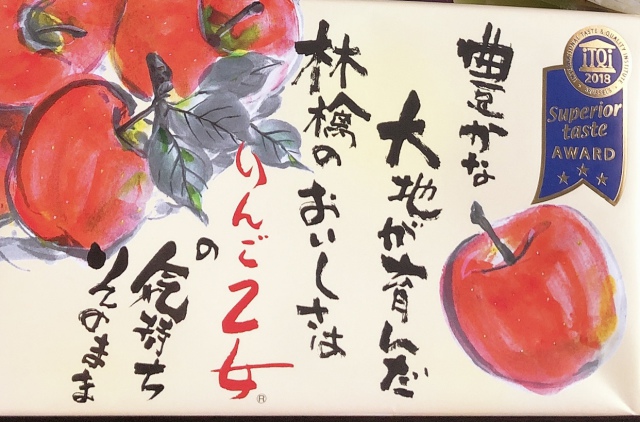 豊かな
大地が育んだ
林檎のおいしさは
りんご乙女®
の
気持ち
そのまま
INTERNATIONAL TASTE & QUALITY INSTITUTE
iTQi
2018
Superior
taste
AWARD